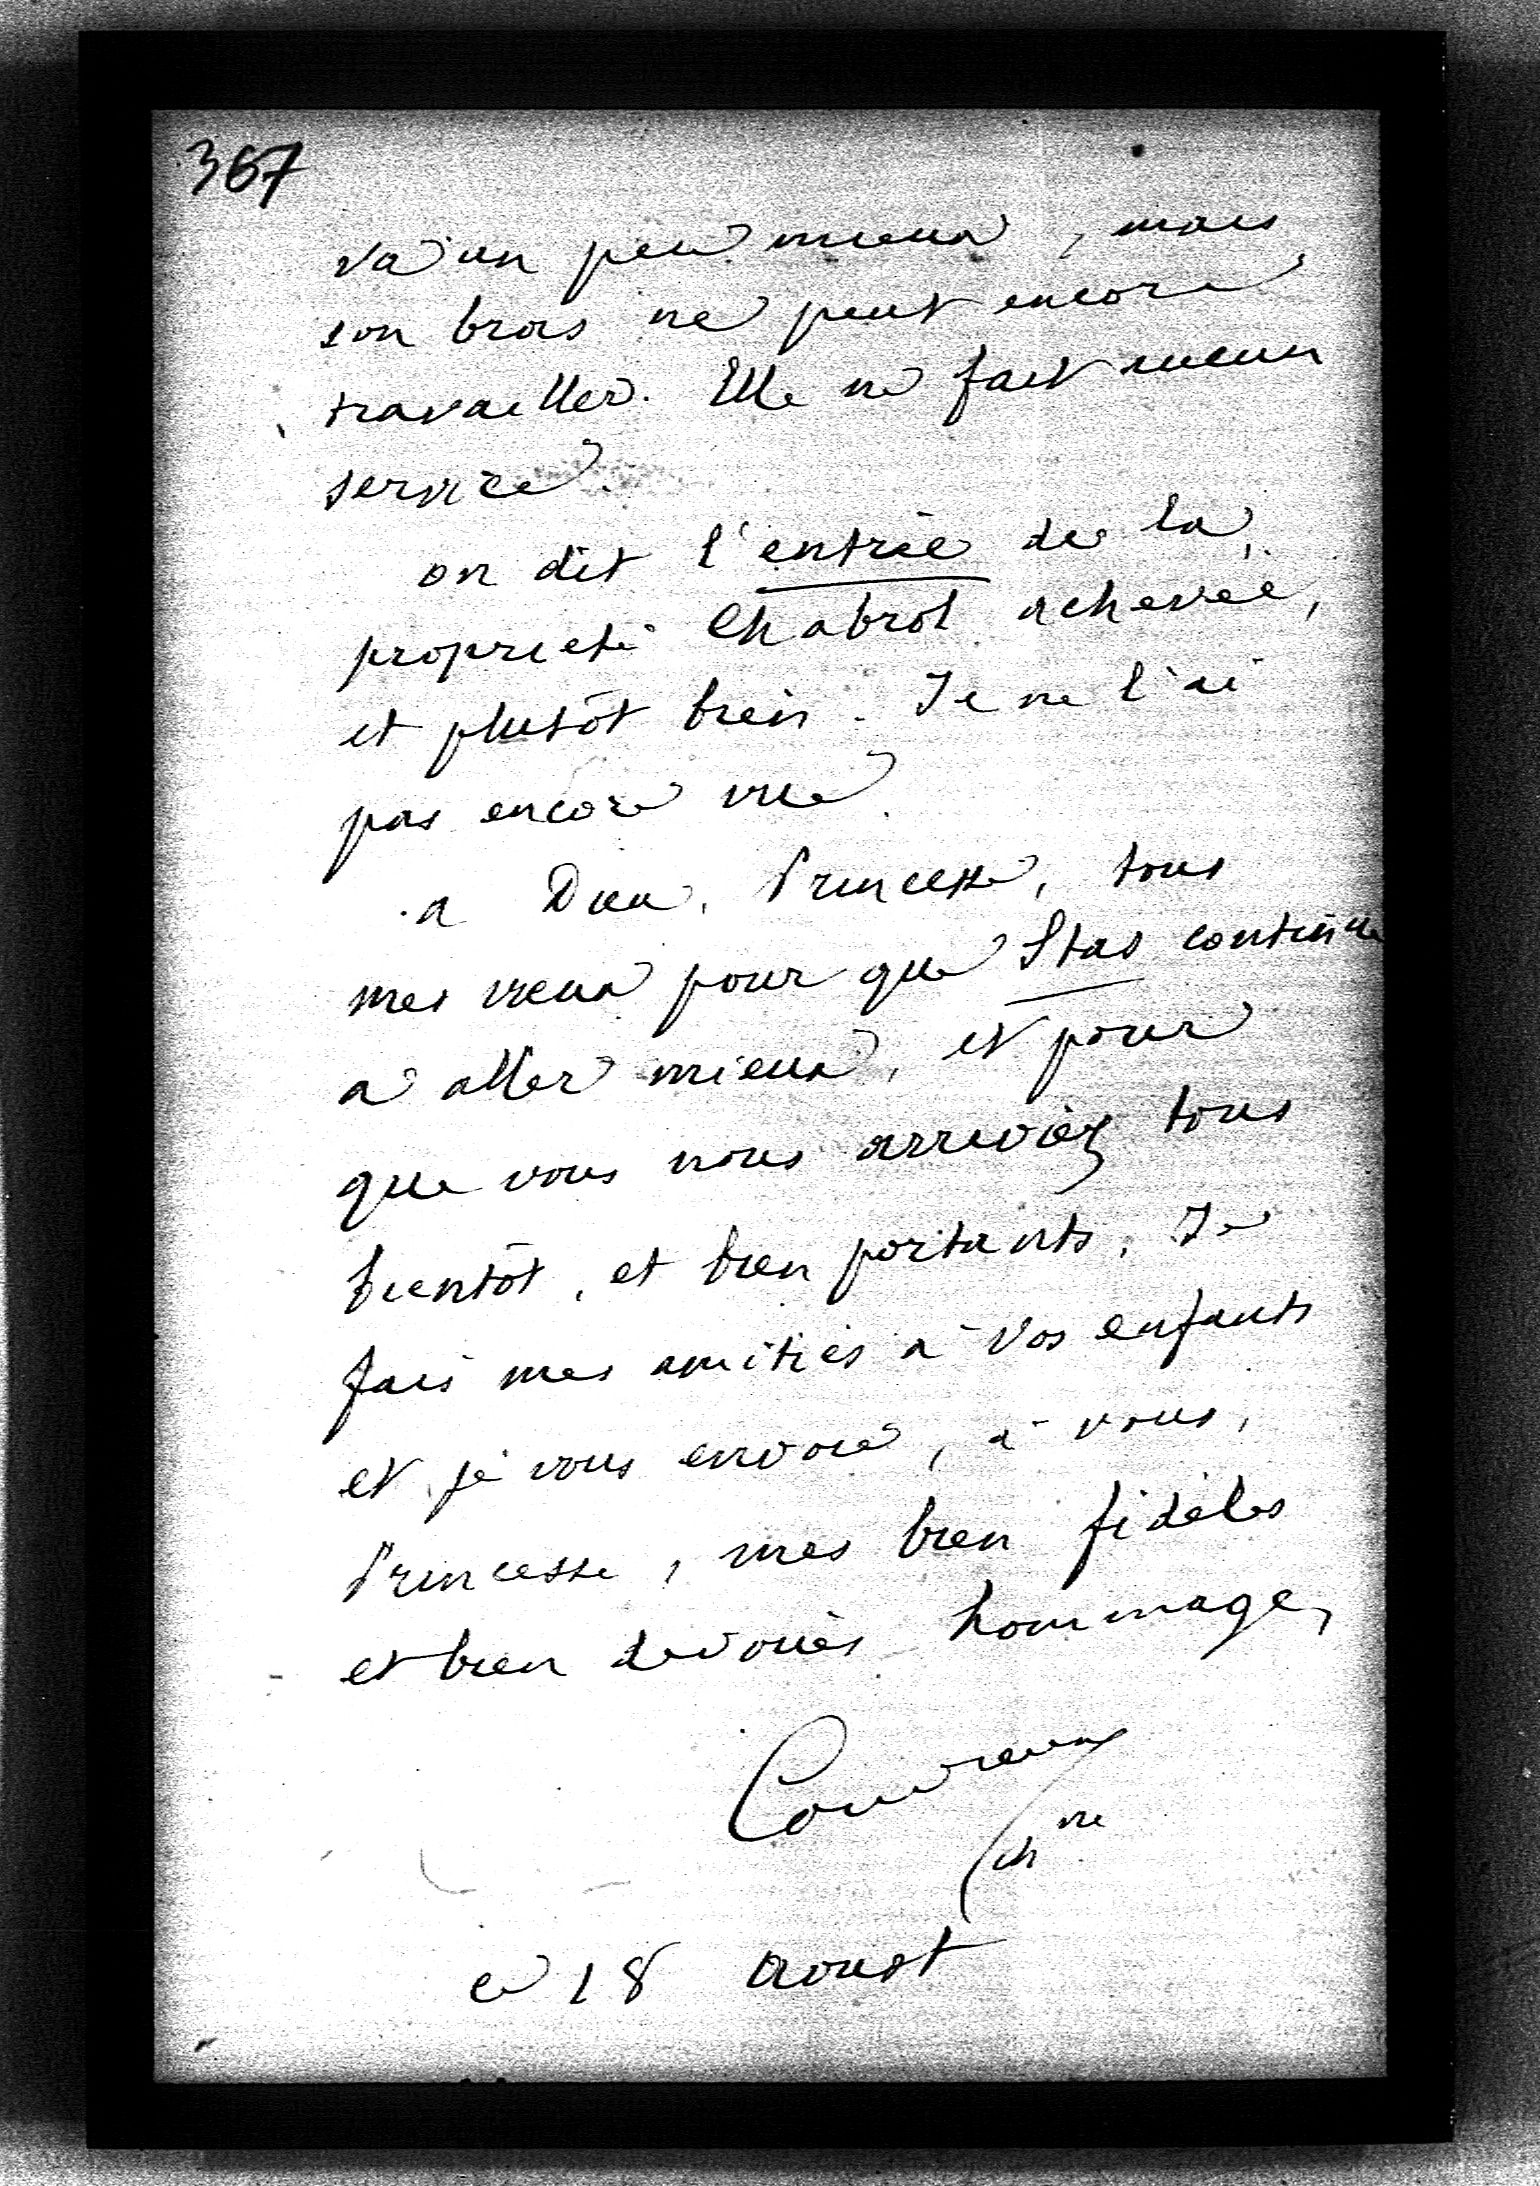 367
va un peu mieux, mais
son bras ne peut encore
travailler. Elle ne fait aucun
service.
on dit l'entrée de la
proprieté Chabrol achevée,
et plutôt bien. Je ne l'ai
pas encore vue.
a Dieu, Princesse, tous
mes vœux pour que Stas continue
a aller mieux, et pour
que vous nous arriviez tous
bientôt, et bien portants. Je
fais mes amitiés à vos enfants
et je vous envoie, à vous,
Princesse, mes bien fidèles
et bien dévoués hommages,
Couvreux
ch ne
ce 18 Aoust